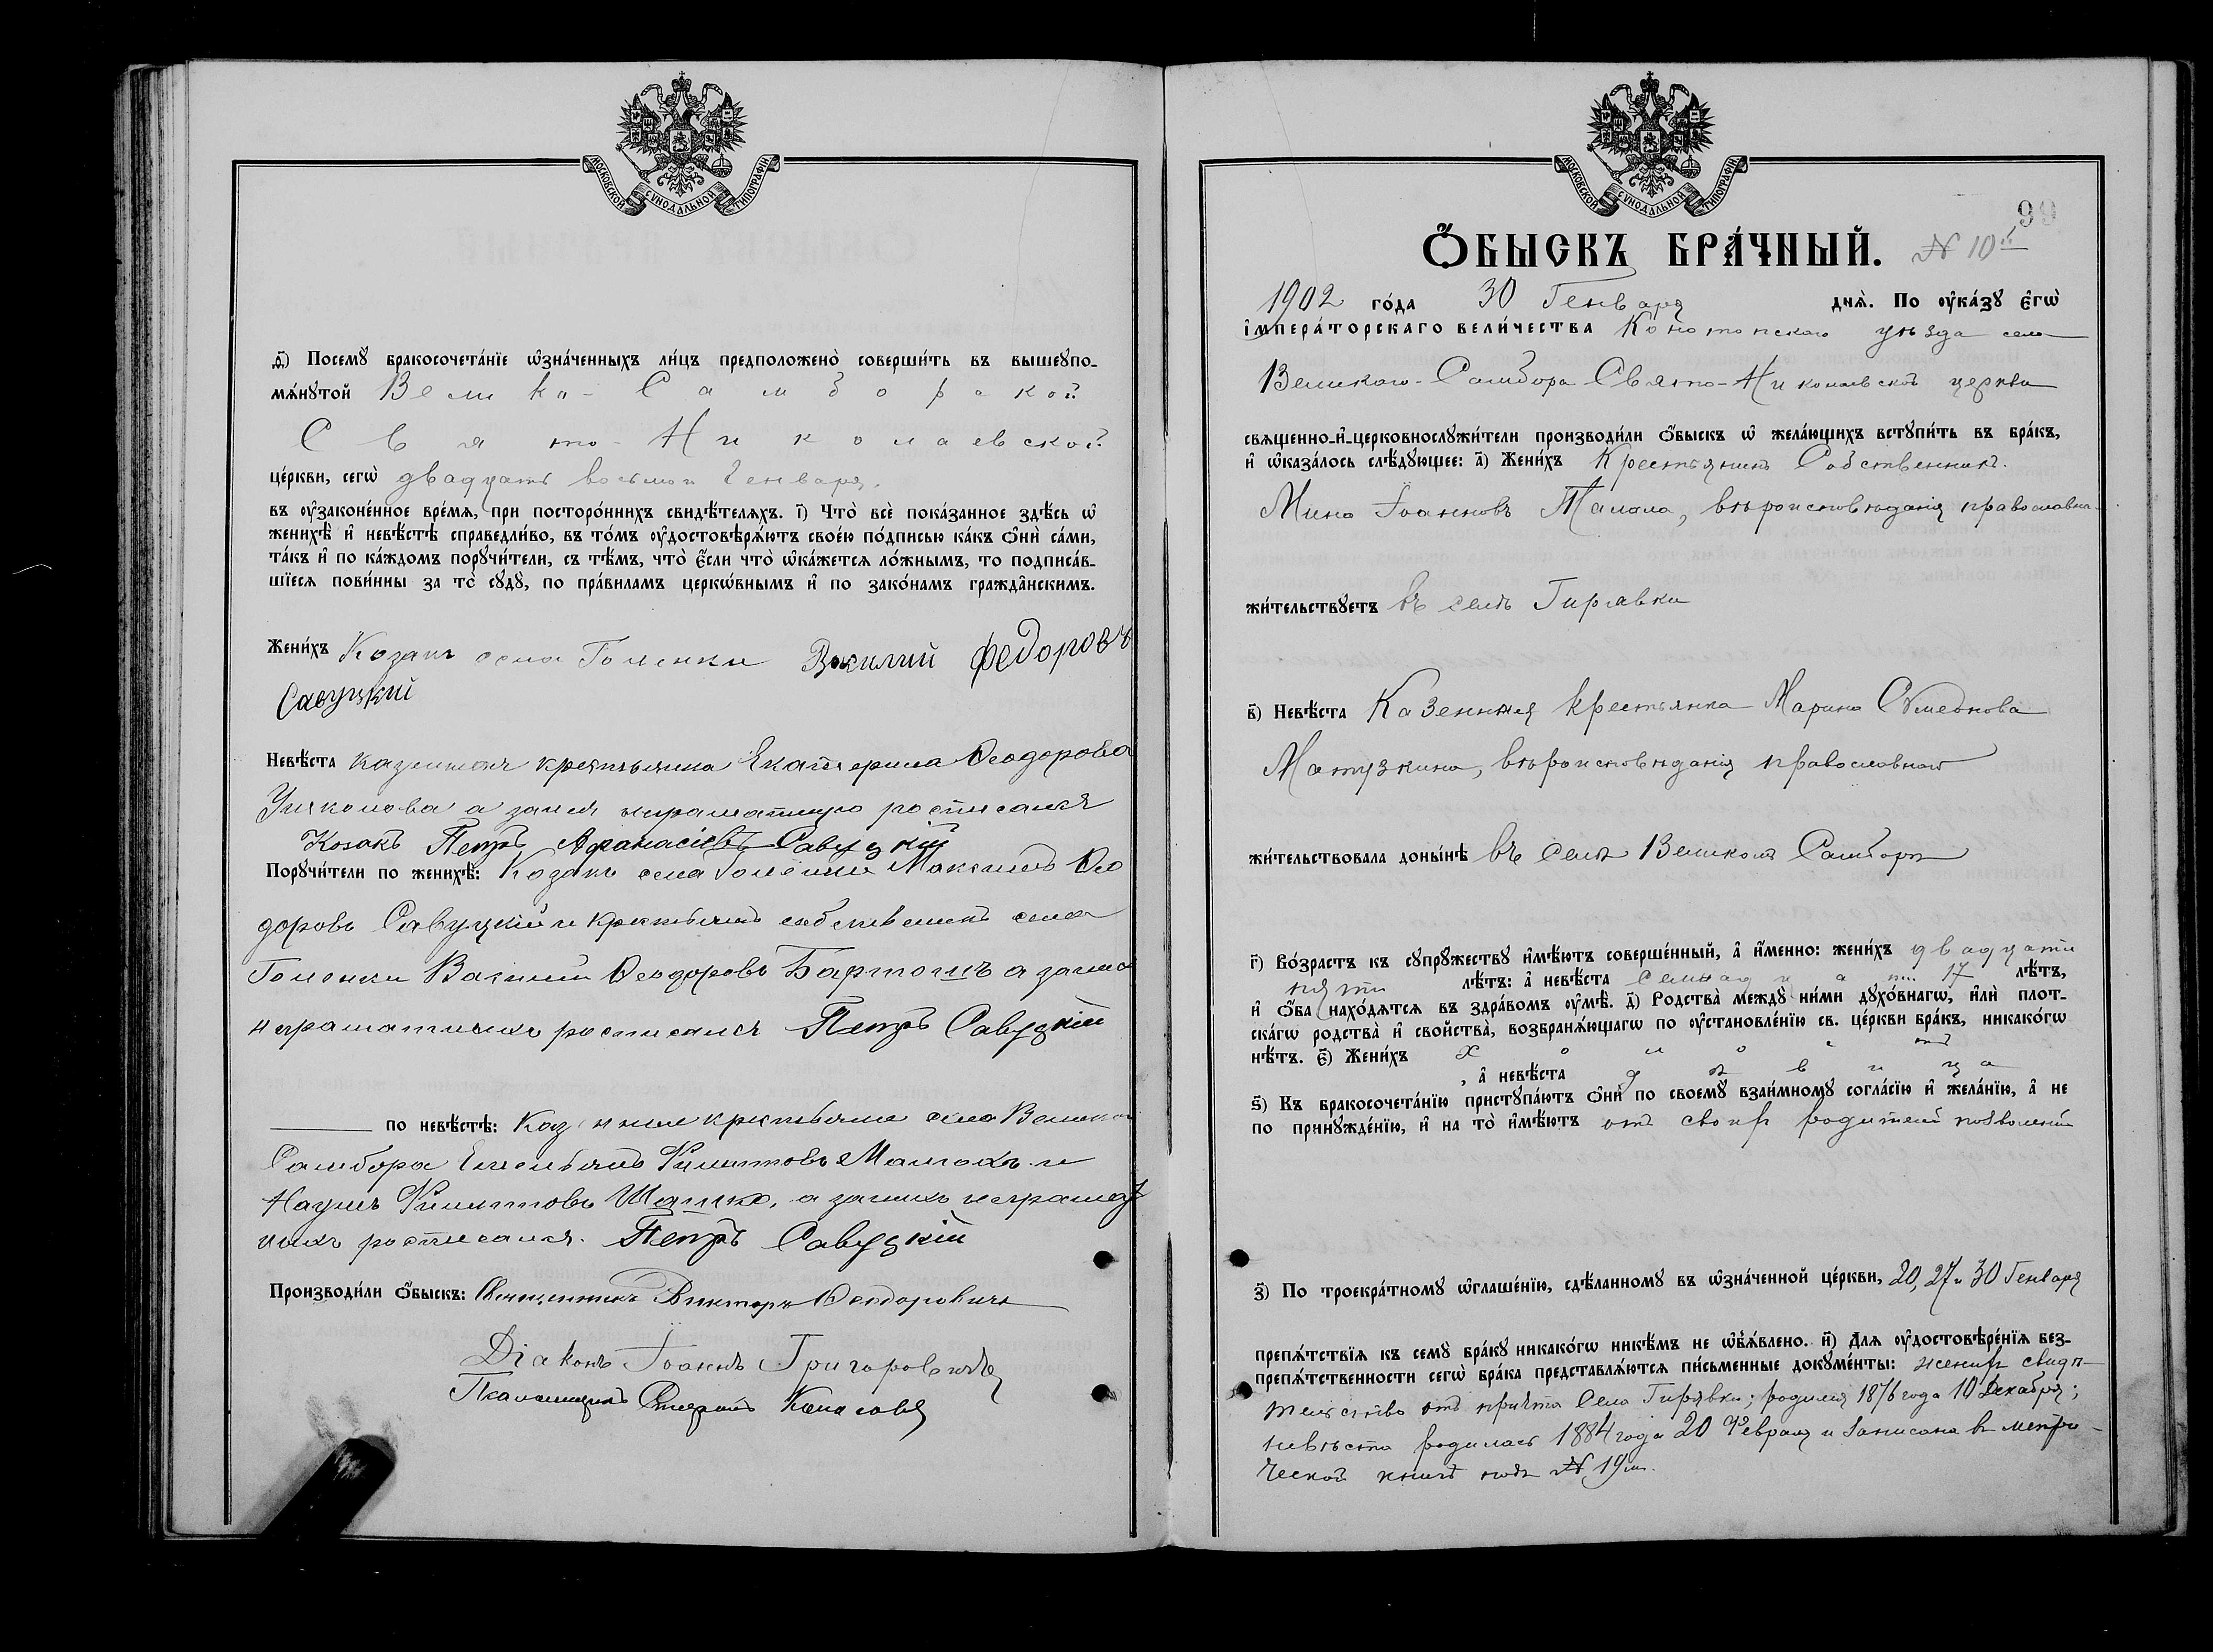 МОСКОВСКОЙ СѴНОДАЛЬНОЙ ТИПОГРАФІИ
д҃і) Посемꙋ бракосочета́нїе ѡ҆зна́ченныхъ ли́цъ предположено̀ соверши́ть въ вышеꙋпо-
мѧ́нꙋтой Велико-Самборской
Свято-Николаевской
це́ркви, сегѡ̀ двадцать восьмого Генваря.
въ ᲂу҆законе́нное вре́мѧ, при посторо́ннихъ свидѣ́телѧхъ. і҃) Что̀ всѐ пока́занное здѣ́сь ѡ҆
женихѣ̀ и҆ невѣ́стѣ справедли́во, въ то́мъ ᲂу҆достовѣрѧ́ютъ свое́ю по́дписью ка́къ ѻ҆нѝ са́ми,
та́къ и҆ по ка́ждомъ порꙋчи́тели, съ тѣ́мъ, что̀ є҆́сли что̀ ѡ҆ка́жетсѧ ло́жнымъ, то подписа́в-
шїесѧ пови́нны за то̀ сꙋдꙋ̀, по пра́виламъ церкѡ́внымъ и҆ по зако́намъ гражда̑нскимъ.
Жени́хъ Козакъ села Голенки Василий Федоровъ
Савуцкий
Невѣ́ста казенная крестьянка Екатерина Ѳеодорова
а за нея неграматную росписался
Козакъ Петръ Афанасіевъ Савуцкій
Порꙋчи́тели по женихѣ̀: Козакъ села Голенки Максимъ Ѳео
доровъ Савуцкій и крестьянинъ собственникъ села
Голенки Василий Ѳеодоровъ Бартошъ а за них
неграматныхъ росписался Петръ Савуцкій
по невѣ́стѣ: Казенные крестьяне села Велико
Самбора Емельянъ Филипповъ и
Наумъ Филипповъ а за нихъ неграмат
ныхъ росписался. Петръ Савуцкій
Производи́ли ѻ҆́быскъ: Священникъ Викторъ Ѳеодоровичъ
Діаконъ Іоаннъ Григоровичъ
Псаломщикъ
МОСКОВСКОЙ СѴНОДАЛЬНОЙ ТИПОГРАФІИ
99
Ѻ҆́БЫСКЪ БРА́ЧНЫЙ. № 10й
1902 го́да 30 Генваря днѧ̀. По ᲂу҆ка́зꙋ є҆гѡ̀
і҆мпера́торскаго вели́чества Конотопскаго уѣзда села
Великого-Самбора Свято-Николаевской церкви
свѧщенно-и҆-церковнослꙋжи́тели производи́ли ѻ҆́быскъ ѡ҆ жела́ющихъ встꙋпи́ть въ бра́къ,
и҆ ѡ҆каза́лось слѣ́дꙋющее: а҃) Жени́хъ Крестьянинъ Собственникъ.
Мина Іоанновъ Талала, вѣроисповѣданія православна-
жи́тельствꙋетъ въ селѣ Гирявки
в҃) Невѣ́ста Казенная крестьянка Марина Сѵмеонова
Матузкина, вѣроисповѣданія православнаго
жи́тельствовала доны́нѣ въ селѣ Великомъ Самборѣ
г҃) Во́зрастъ къ сꙋпрꙋ́жествꙋ и҆мѣ́ютъ соверше́нный, а҆ и҆́менно: жени́хъ двадцати
пяти лѣ́тъ: а҆ невѣ́ста семнадцати 17 лѣ́тъ,
и҆ ѻ҆́ба нахо́дѧтсѧ въ здра́вомъ ᲂу҆мѣ̀. д҃) Родства̀ междꙋ̀ ни́ми дꙋхо́внагѡ, и҆лѝ плот-
ска́гѡ родства̀ и҆ сво́йства̀, возбранѧ́ющагѡ по ᲂу҆становле́нїю св. це́ркви бра́къ, никако́гѡ
нѣ́тъ. є҃) Жени́хъ холостъ
, а҆ невѣ́ста дѣвица
ѕ҃) Къ бракосочета́нїю пристꙋпа́ютъ ѻ҆нѝ по своемꙋ̀ взаи́мномꙋ согла́сїю и҆ жела́нїю, а҆ не
по принꙋжде́нїю, и҆ на то̀ и҆мѣ́ютъ отъ своихъ родителей позволеніе
з҃) По троекра́тномꙋ ѡ҆глаше́нїю, сдѣ́ланномꙋ въ ѡ҆зна́ченной це́ркви, 20, 27 и 30 Генваря
препѧ́тствїѧ къ семꙋ̀ бра́кꙋ никако́гѡ никѣ́мъ не ѡ҆б̾ѧ́влено. и҃) Длѧ ᲂу҆достовѣре́нїѧ без-
препѧ́тственности сегѡ̀ бра́ка представлѧ́ютсѧ пи́сьменные докꙋме́нты: женихъ свидѣ-
тельство отъ причта села Гирявки; родился 1876 года 10 Декабря;
невѣста родилась 1884 года 20 Февраля и записана въ метри-
ческой книгѣ подъ № 19м.